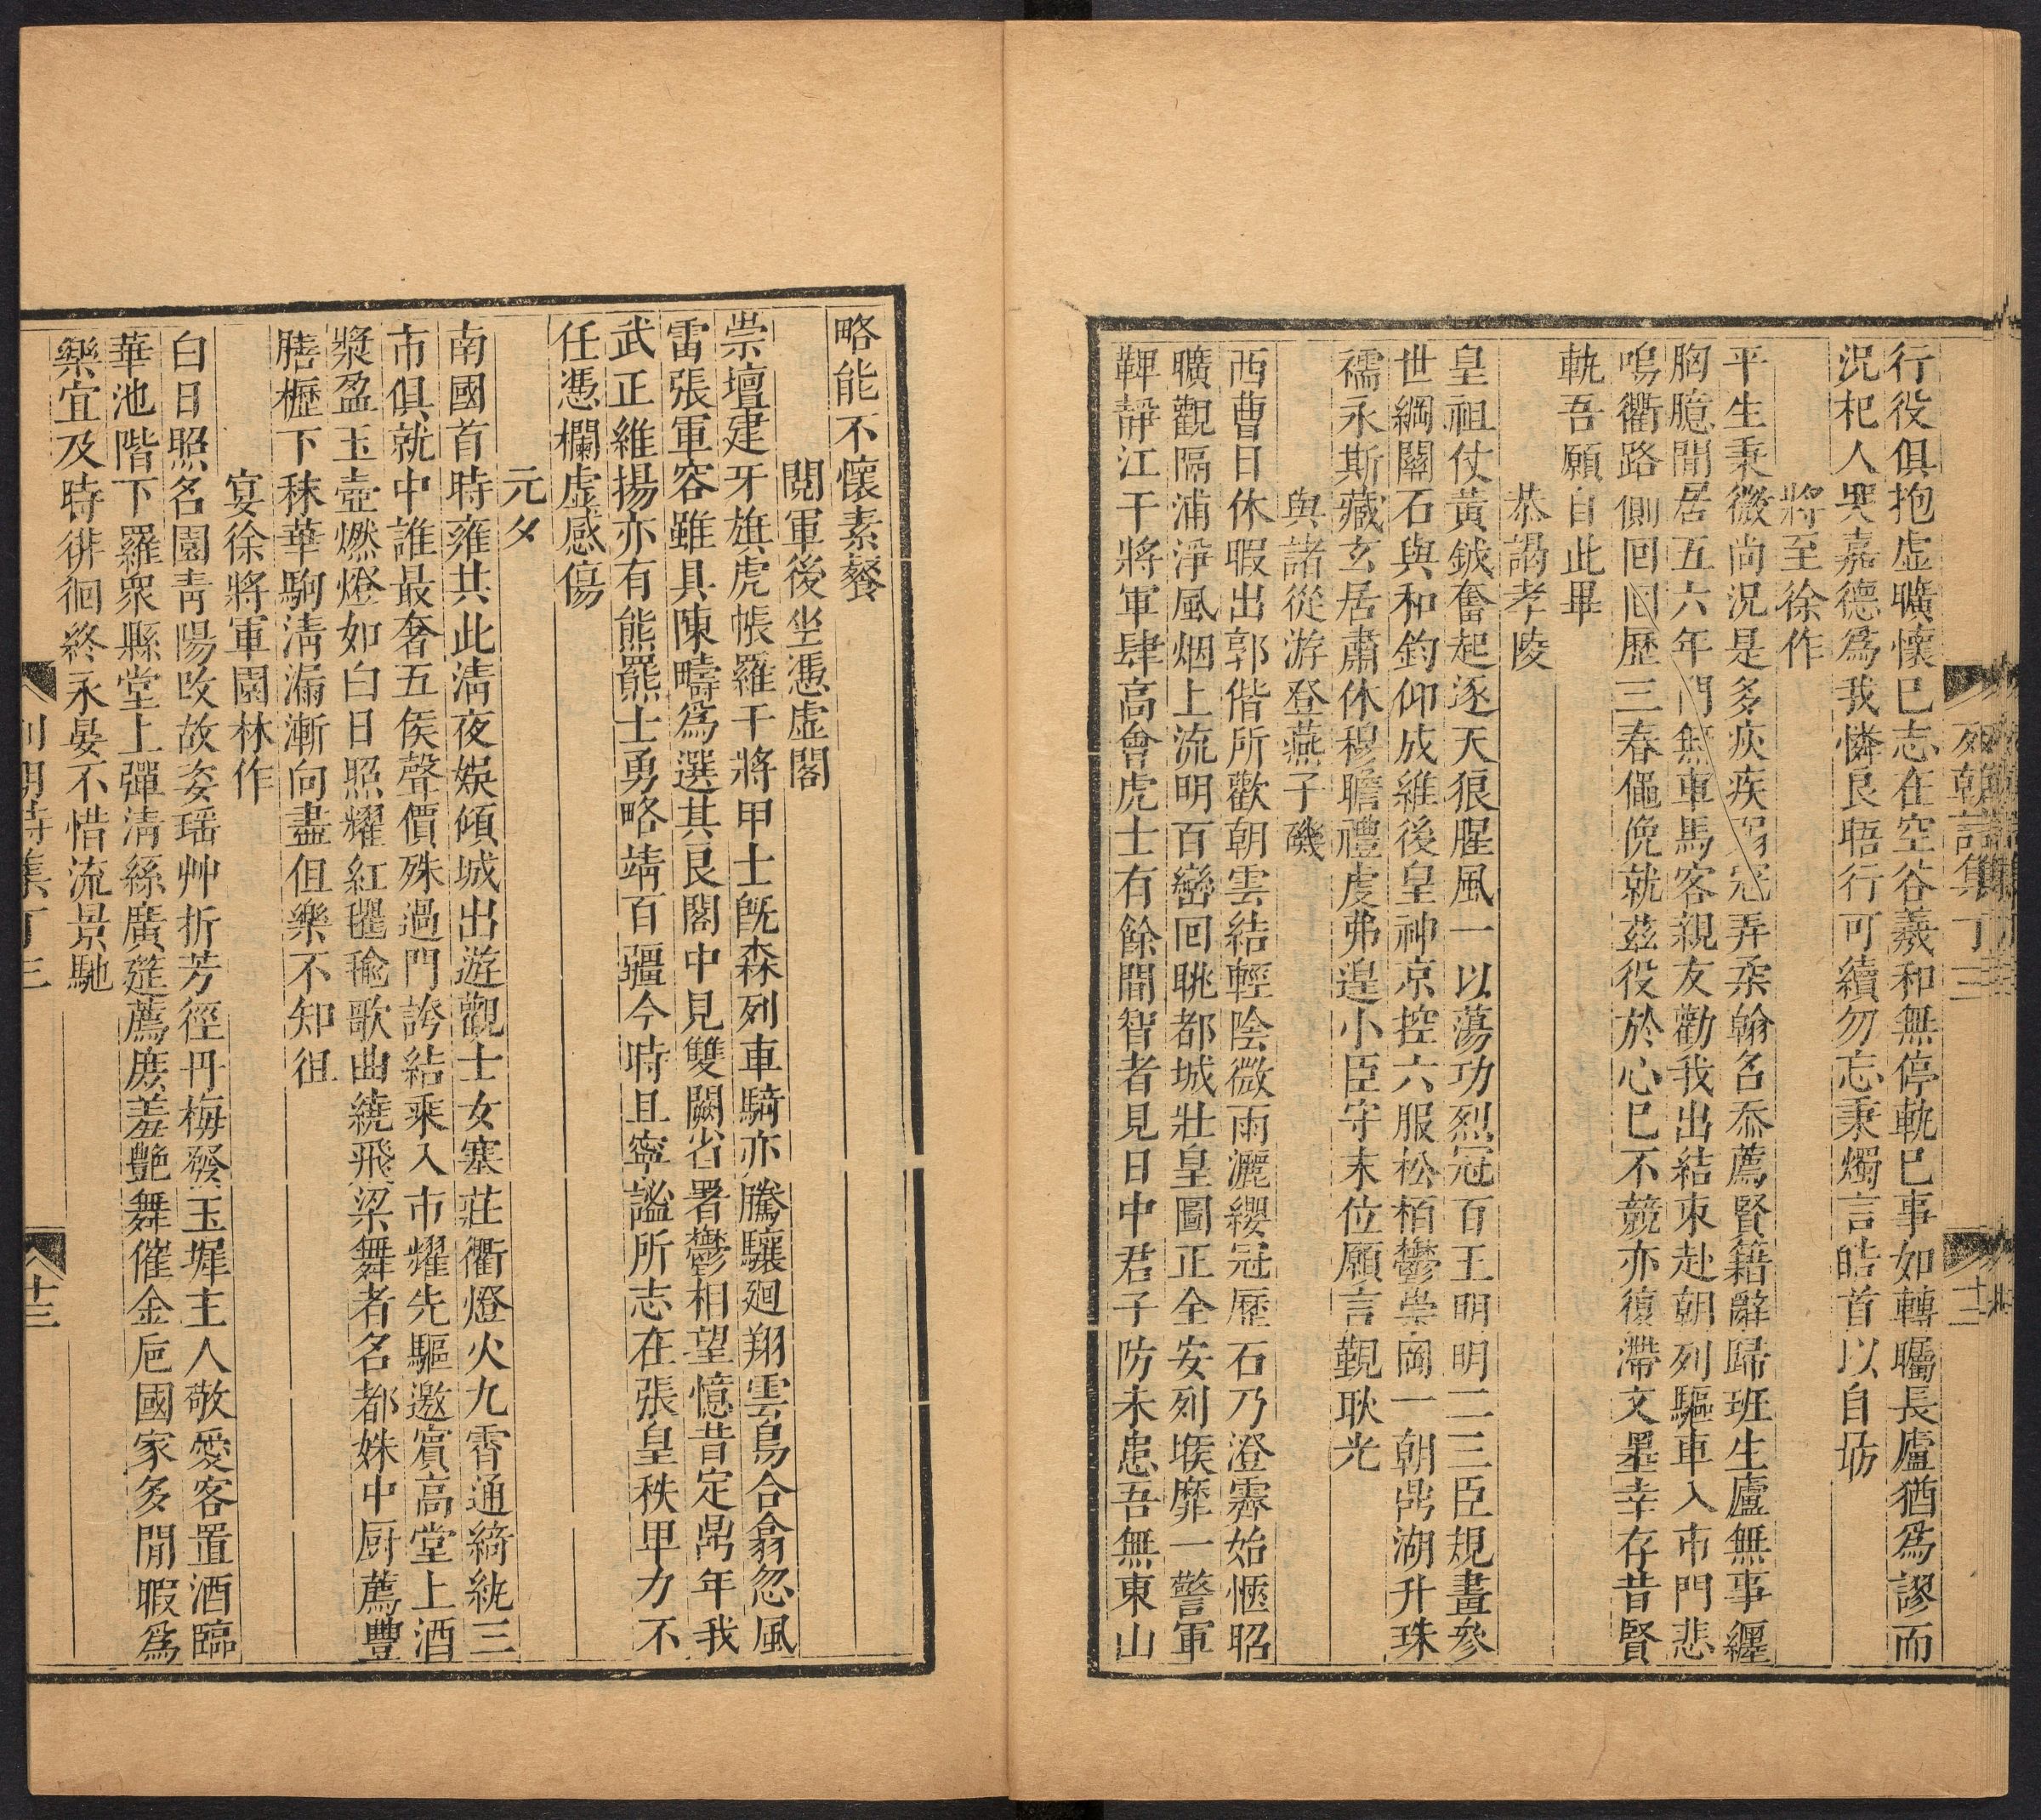 列朝詩集丁三
十二
行役俱抱虛曠懷已志在空谷羲和無停軌已事如轉矚長廬猶爲謬而
況杞人哭嘉德爲我憐良晤行可續勿忘秉燭言皓首以自勗
將至徐作
平生秉微尚況是多疢疾弱冠弄柔翰名忝薦賢籍辭歸班生廬無事纏
胸臆閒居五六年門無車馬客親友勸我出結束赴朝列驅車入市門悲
嗚衢路側回回歷三春僶俛就茲役於心巳不競亦復滯文墨幸存昔賢
軌吾願自此畢
恭謁孝陵
皇祖仗黃鉞奮起逐天狼腥風一以蕩功烈冠百王明明二三臣規畫參
世綱關石與和鈞仰成維後皇神京控六服松栢鬱崇岡一朝鼎湖升珠
襦永斯藏玄居肅休穆瞻禮虔弗遑小臣守末位願言覲耿光
與諸從游登燕子磯
西曹日休暇出郭偕所歡朝雲結輕陰微雨灑纓冠歷石乃澄霽始愜昭
曠觀隔浦淨風烟上流明百巒回眺都城壯皇圖正全安列堠靡一警軍
鞞靜江干將軍肆高會虎士有餘閒智者見日中君子防未患吾無東山
略能不懷素餐
閱軍後坐憑虛閣
崇壇建牙旗虎帳羅干將甲士旣森列車騎亦騰驤廻翔雲鳥合翕忽風
雷張軍容雖具陳疇爲選其良閣中見雙闕省署鬱相望憶昔定鼎年我
武正維揚亦有熊羆士勇略靖百疆今時且寧謐所志在張皇秩甲力不
任憑欄虛感傷
元夕
南國首時雍共此清夜娛傾城出遊觀士女塞莊衢燈火九霄通綺統三
市俱就中誰最奢五侯聲價殊過門誇結乘入市耀先驅邀賓高堂上酒
漿盈玉壺燃燈如白日照耀紅氍毹歌曲繞飛梁舞者名都姝中厨薦豐
膳櫪下秣華駒淸漏漸向盡但樂不知徂
宴徐將軍園林作
白日照名園靑陽改故姿瑤艸折芳徑丹梅發玉墀主人敬愛客置酒臨
華池階下羅衆縣堂上彈淸絲廣筵薦庶羞艷舞催金巵國家多閒暇爲
樂宜及時徘徊終永晏不惜流景馳
列朝詩集丁三
十三